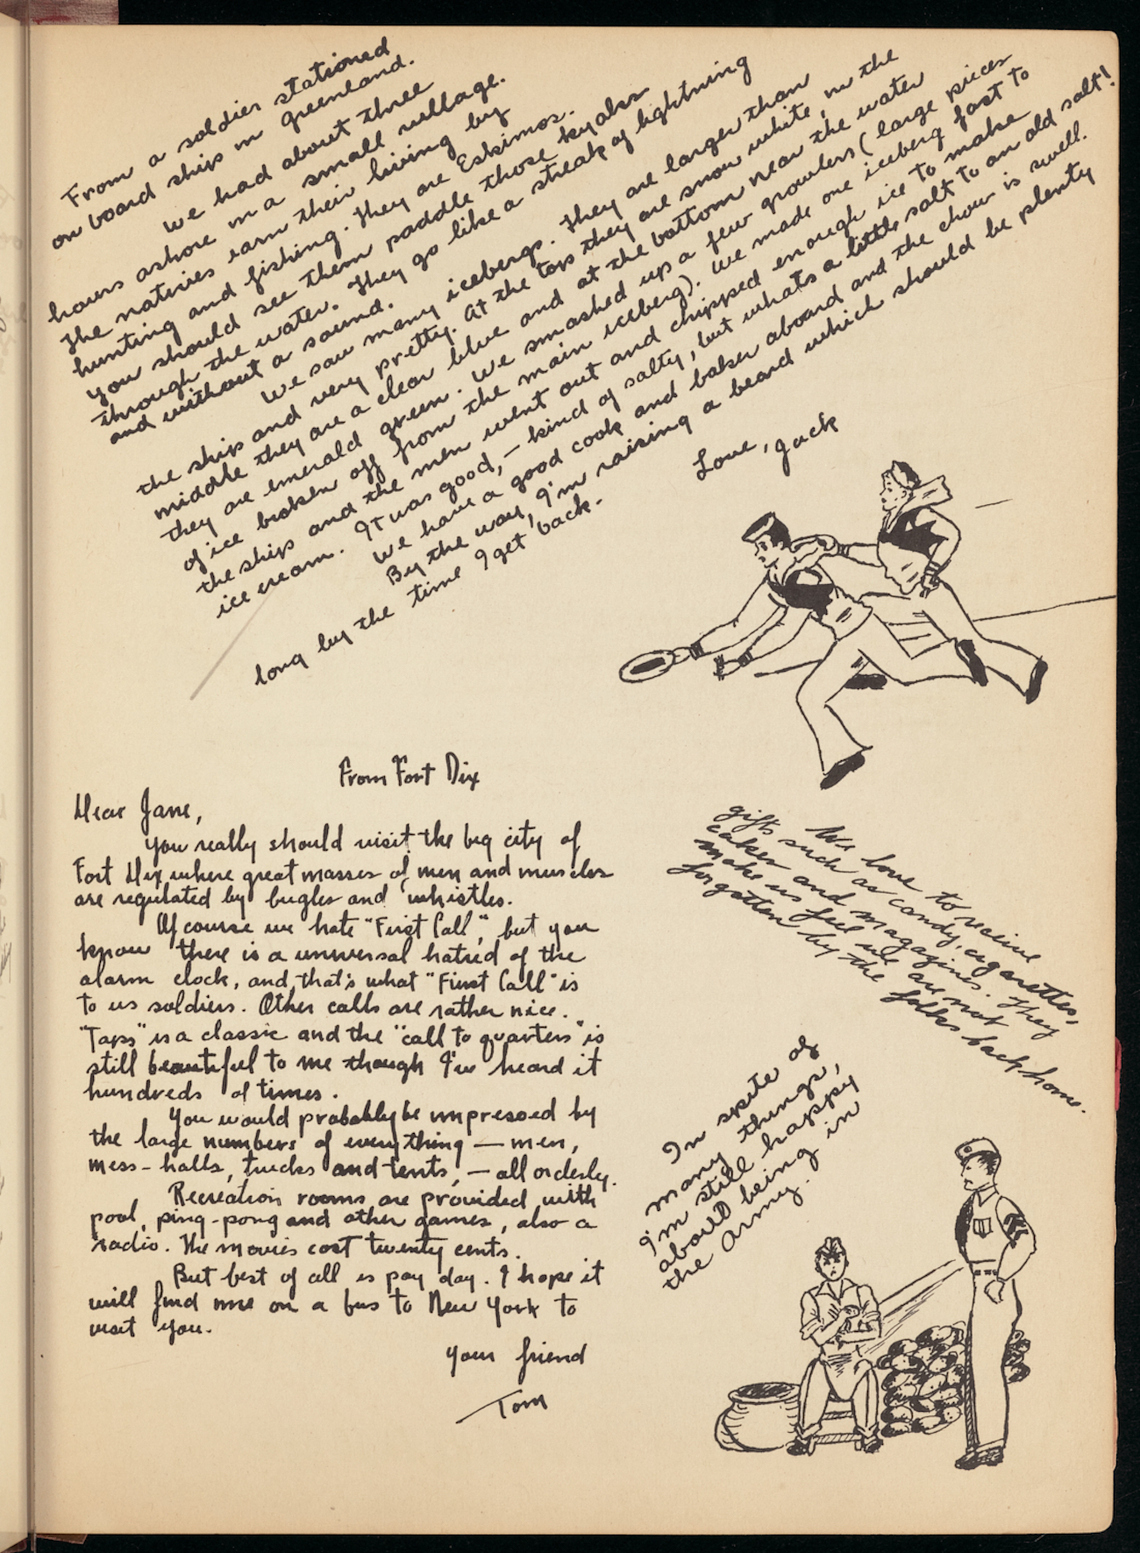 From a soldier stationed
on board ship in Greenland.
We had about three
hours ashore in a small village.
The natives earn their living by
hunting and fishing. They are Eskimos.
You should see them paddle those kyaks
through the water. They go like a streak of lightning
and without a sound.
We saw many icebergs. They are larger than
the ship and very pretty. At the top they are snow white, in the
middle they are a clear blue and at the bottom near the water
they are emerald green. We smashed up a few growlers (large pieces
of ice broken off from the main iceberg). We made one iceberg fast to
the ship and the men went out and chipped enough ice to make
ice cream. It was good, - kind of salty, but whats a little salt to an old salt!
We have a good cook and baker aboard and the chow is swell.
By the way, I'm raising a beard which should be plenty
long by the time I get back.
Love, Jack
From Fort Dix
Dear Jane,
You really should visit the big city of
Fort Dix, where great masses of men and muscles
are regulated by bugles and whistles.
Of course we hate "First Call", but you
know there is a universal hatred of the
alarm clock, and, that's what "First Call" is
to us soldiers. Other calls are rather nice.
"Taps" is a classic and the "call to quarters" is
still beautiful to me though I've heard it
hundreds of times.
You would probably be impressed by
the large numbers of everything — men,
mess-halls, trucks and tents, — all orderly.
Recreation rooms are provided with
pool, ping-pong and other games, also a
radio. The movies cost twenty cents.
But best of all is pay day. I hope it
will find me on a bus to New York to
visit you.
Your friend
Tom
We love to receive
gifts such as candy, cigarettes,
cakes and magazines. They
make us feel we are not
forgotten by the folks back home.
In spite of
many things,
I'm still happy
about being in
the Army.